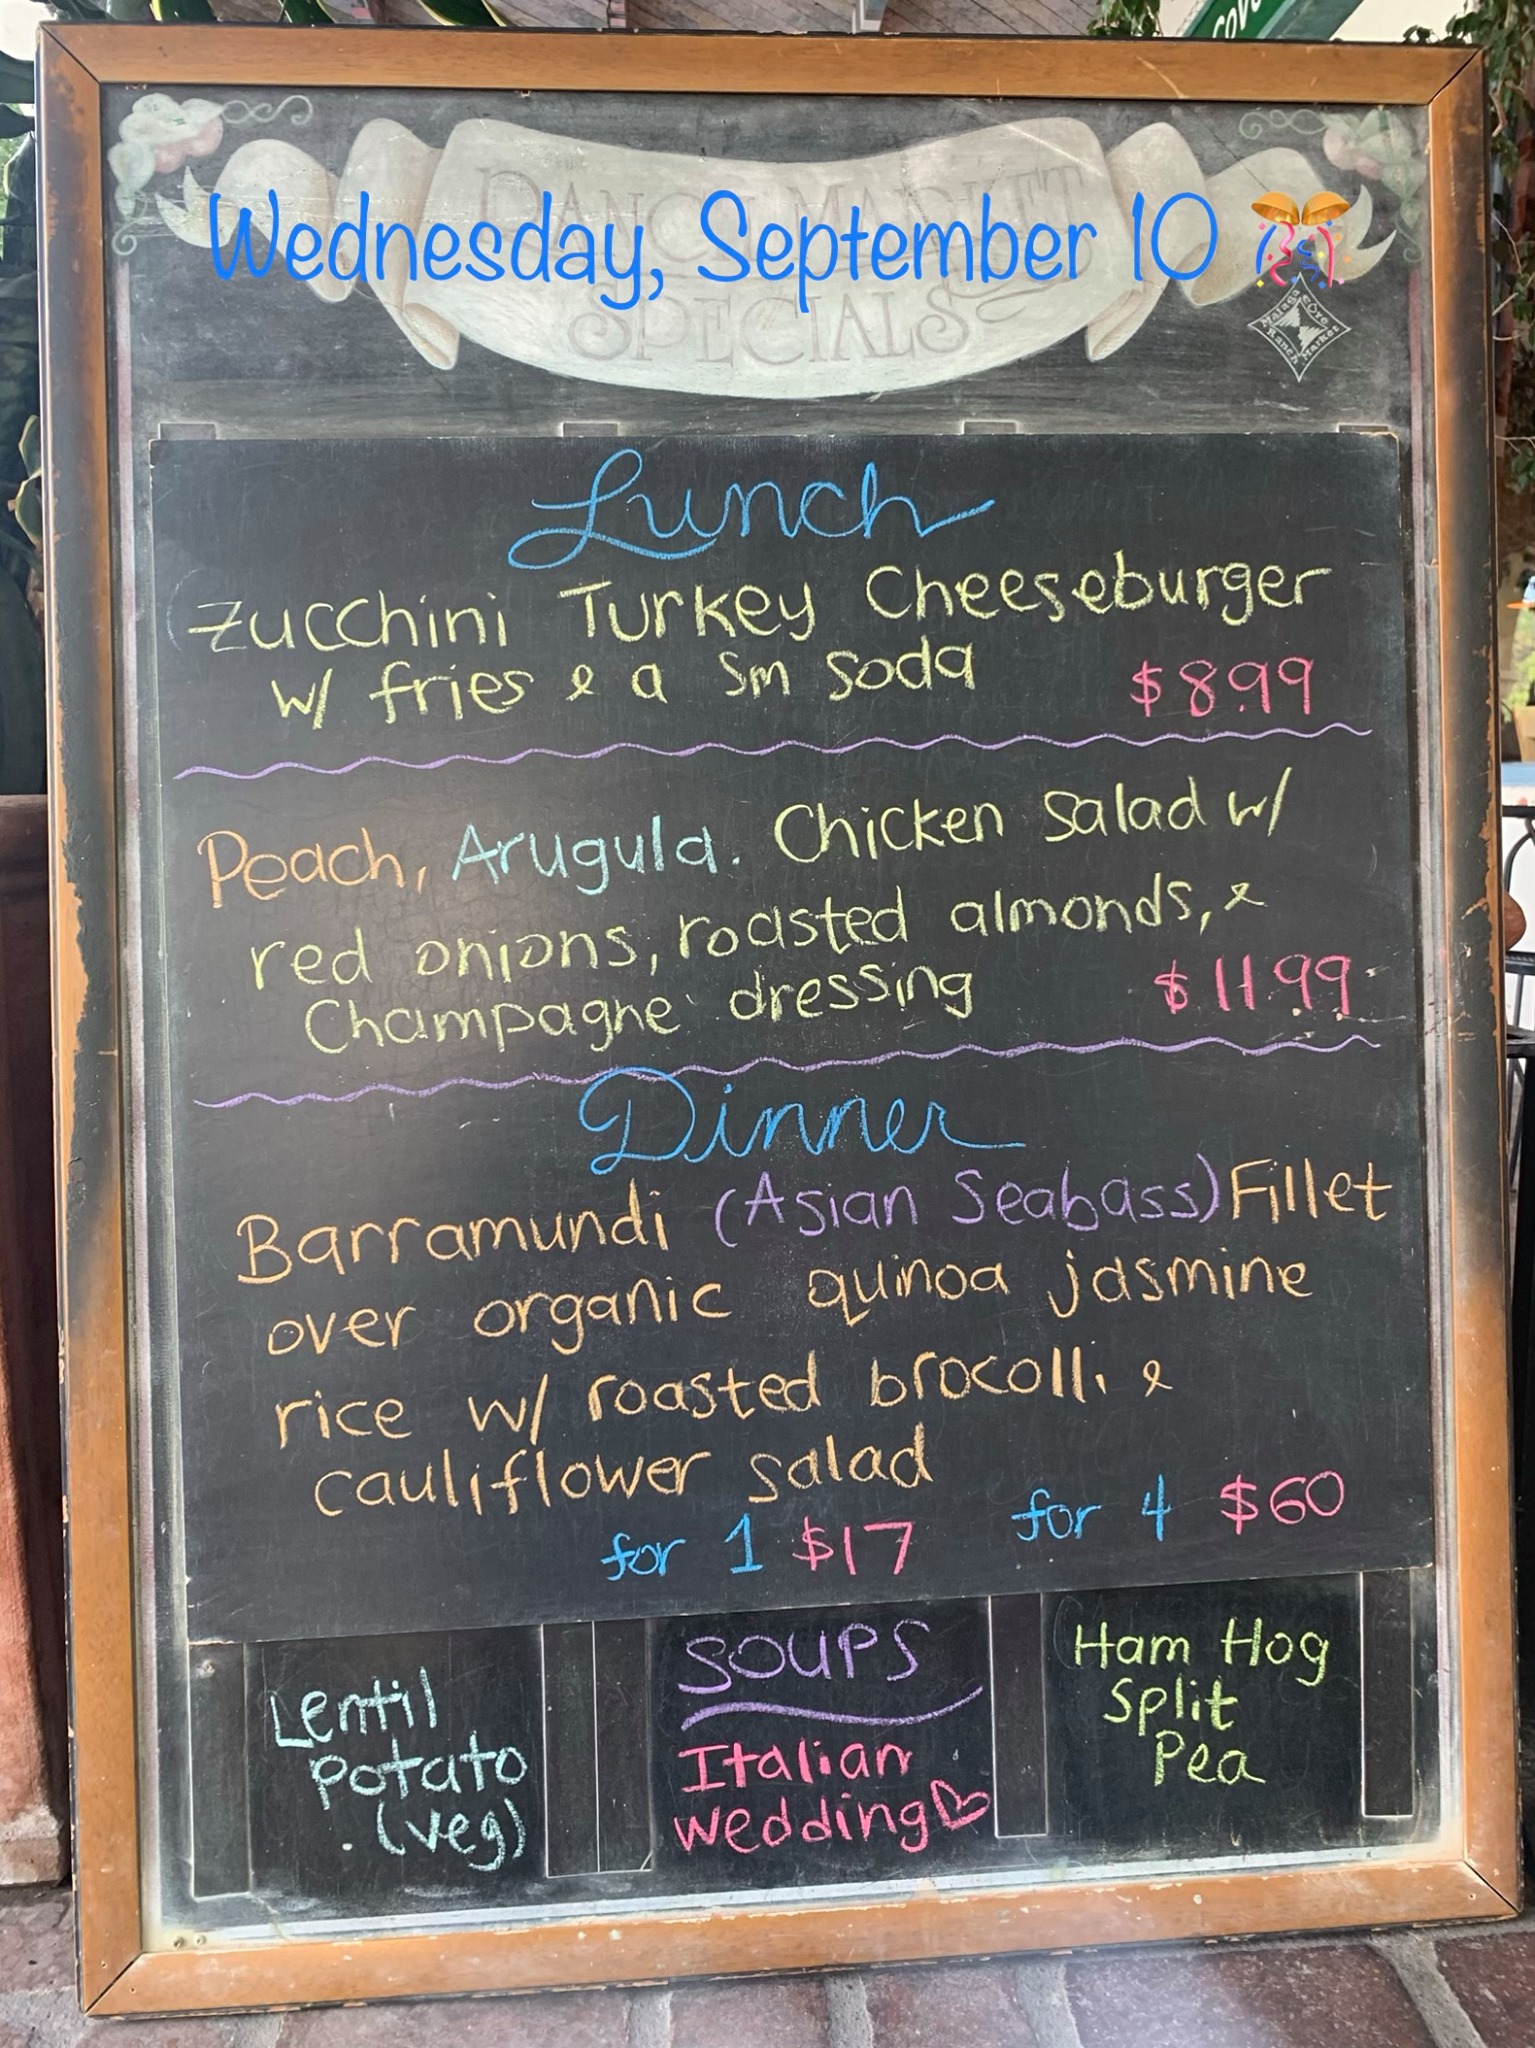 cove
RANCH MARKET
Wednesday, September 10
SPECIALS
Malaga Cove
Ranch Market
Lunch
Zucchini Turkey Cheeseburger
w/ fries & a sm soda $8.99
Peach, Arugula. Chicken Salad w/
red onions, roasted almonds, &
Champagne dressing $11.99
Dinner
Barramundi (Asian Seabass) Fillet
over organic quinoa jasmine
rice w/ roasted brocolli &
cauliflower salad
for 1 $17 for 4 $60
SOUPS
Lentil
potato
(veg)
Italian
wedding
Ham Hog
Split
Pea